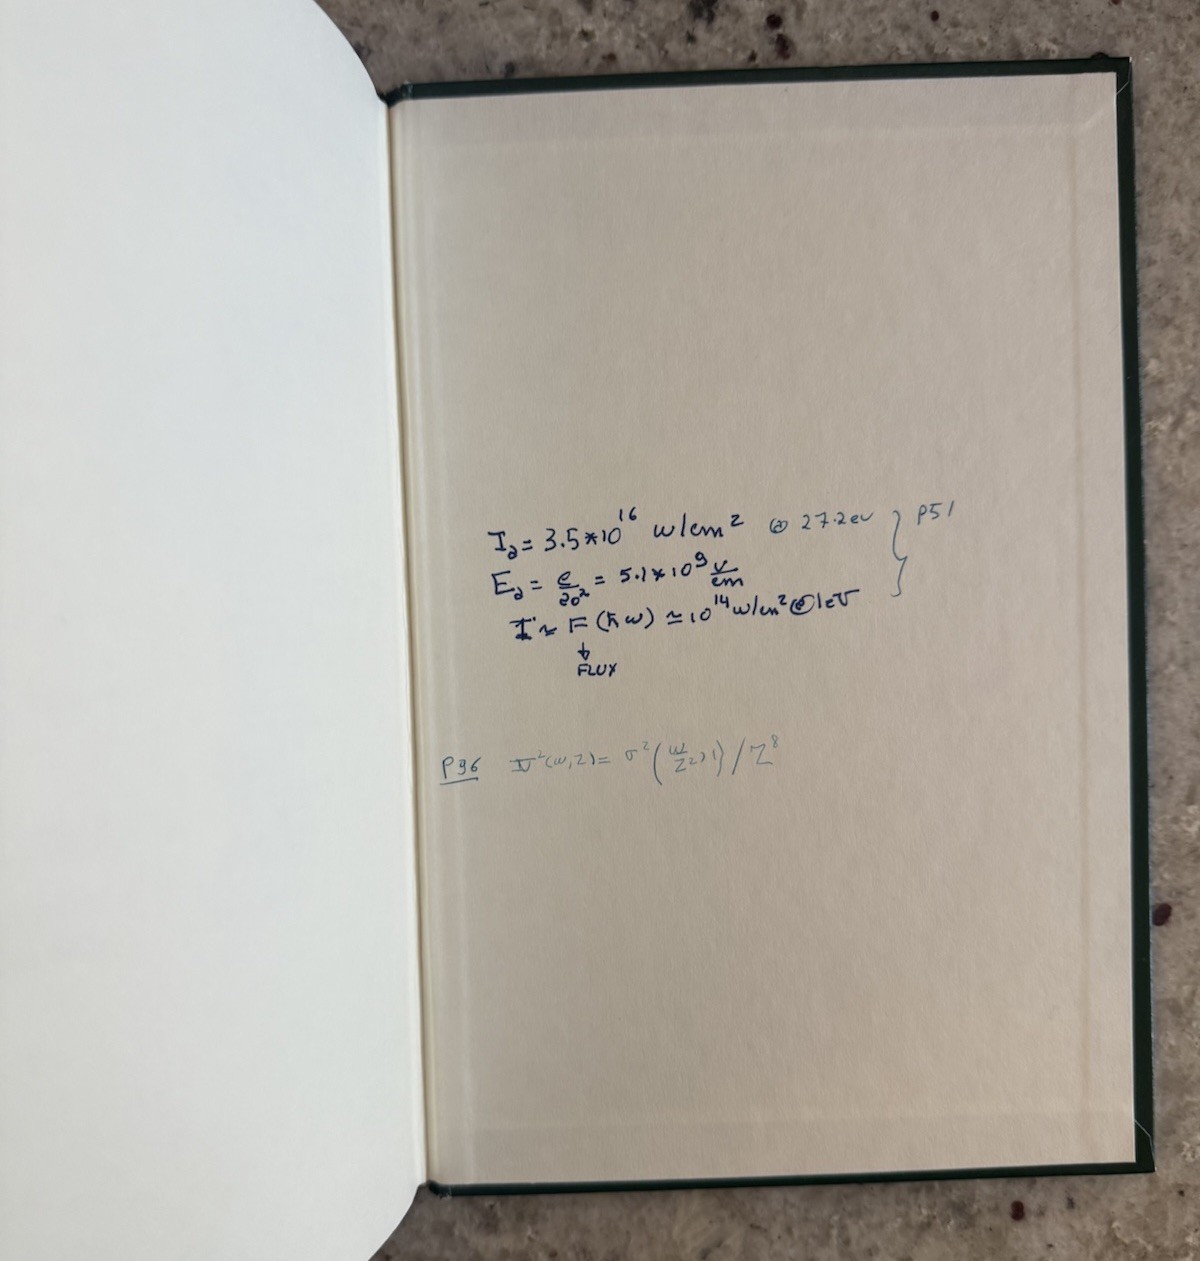 Ia = 3.5*10^16 w/cm^2 @ 27.2ev } P51
Ea = e/ao^2 = 5.1*10^9 V/cm
I ~ F (ħω) ≃ 10^14 w/cm^2 @ 1eV
↓
FLUX
P96 (ω,Z) = σ^2 (ω/Z^2, 1) / Z^8